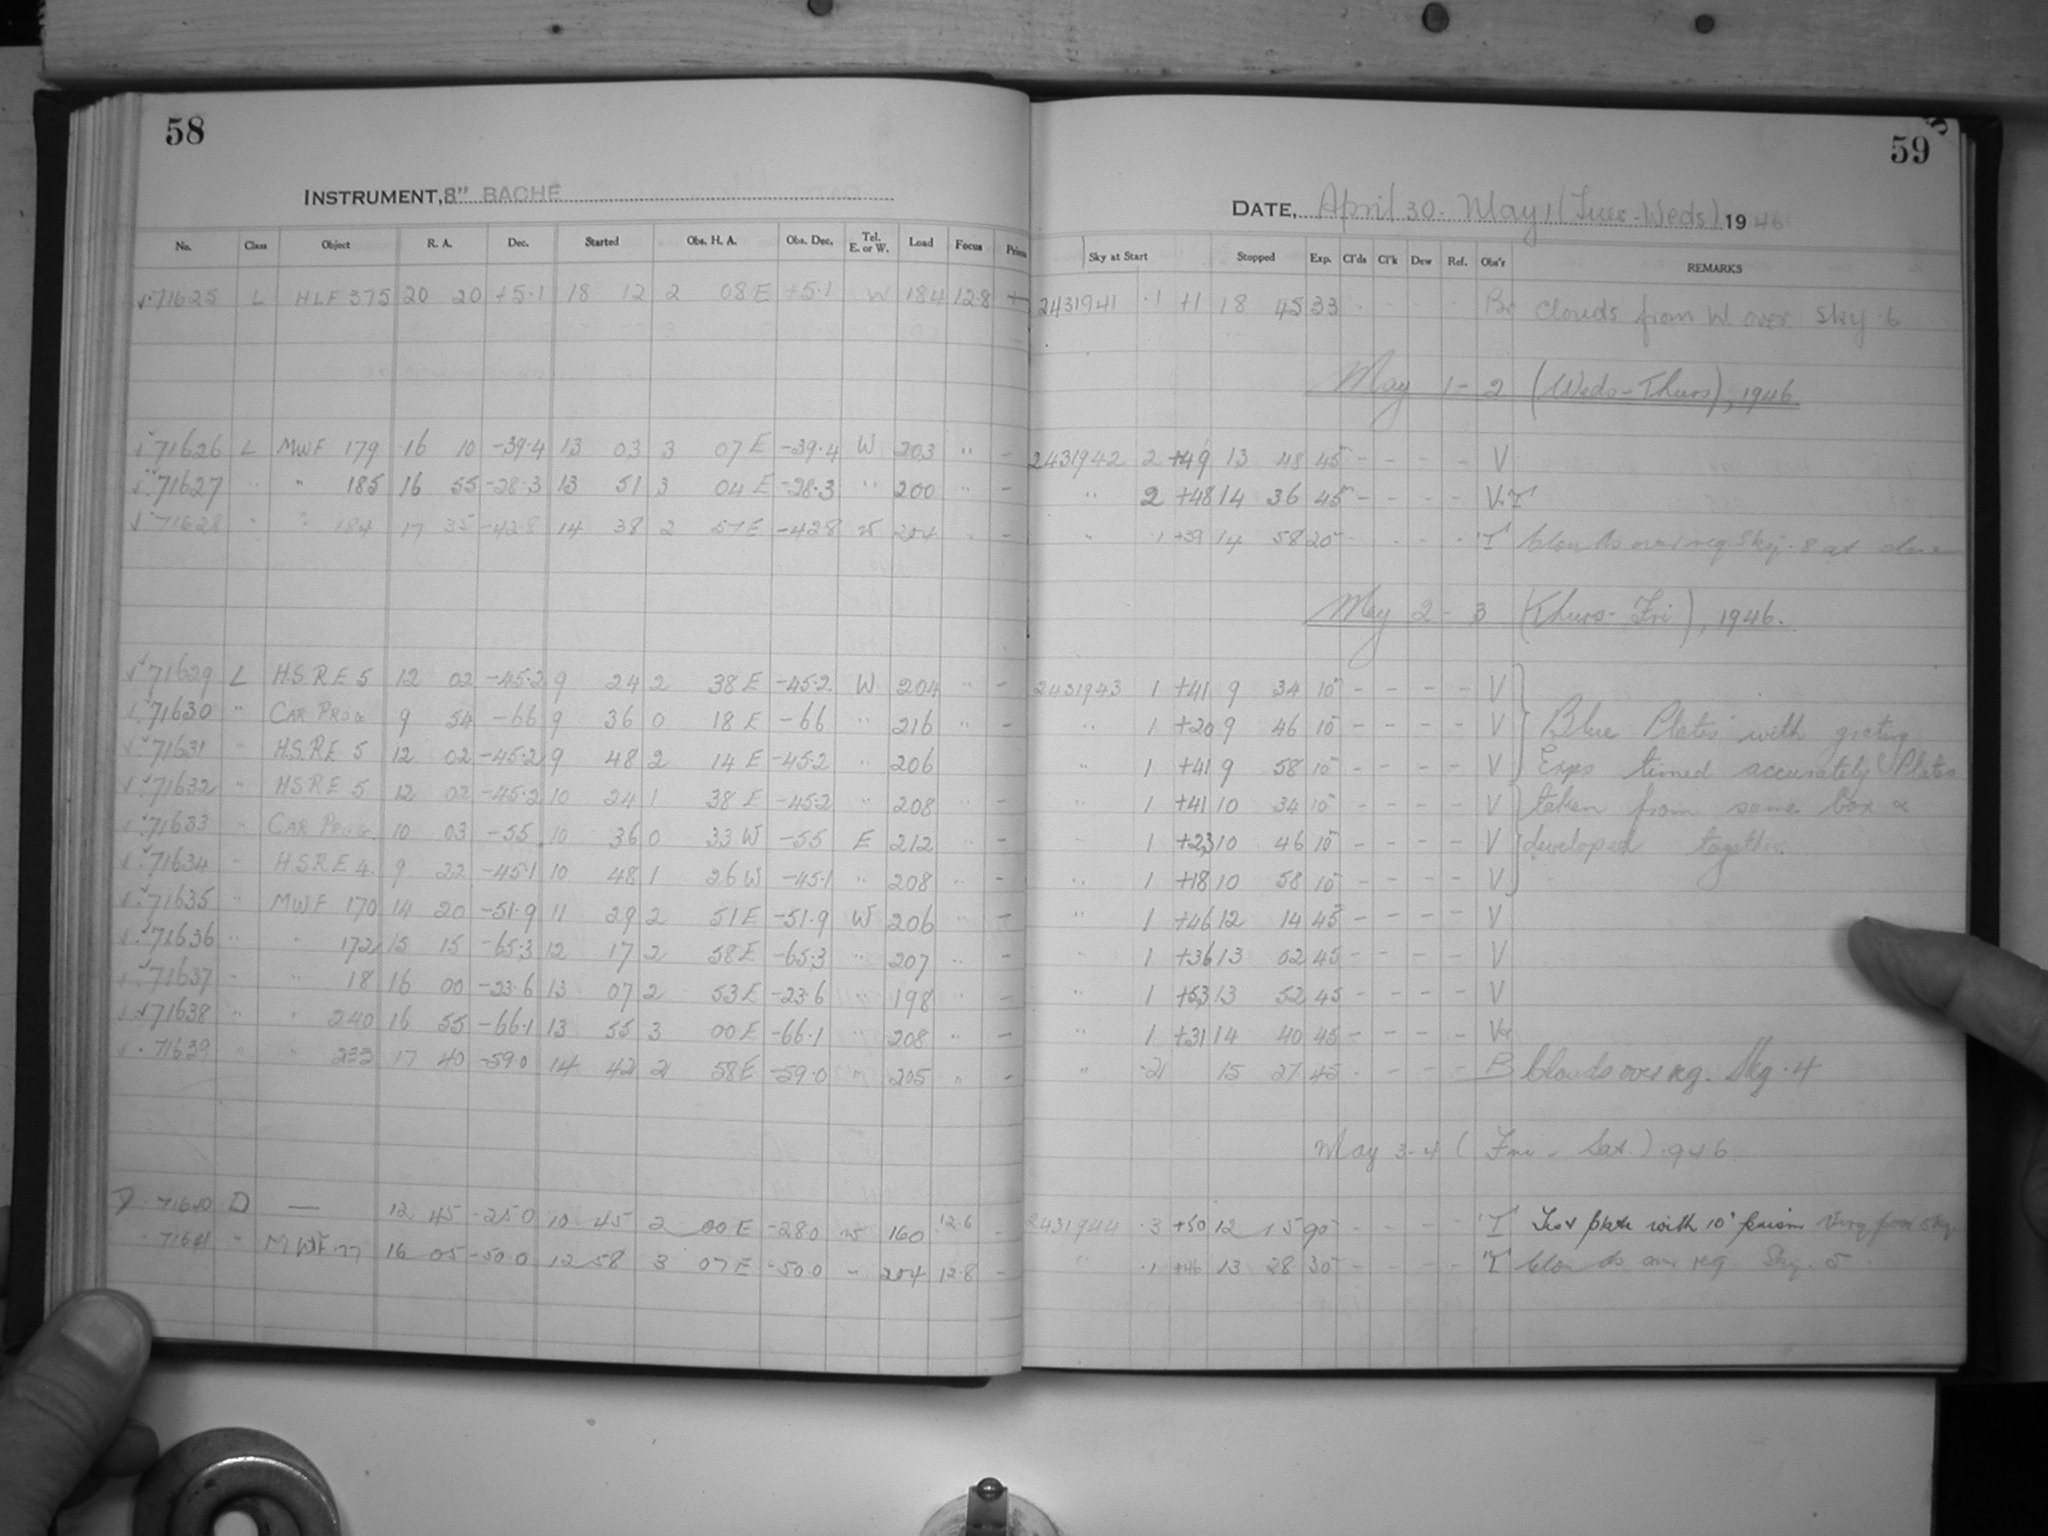 58
INSTRUMENT, 8" BACHE
No. Class Object R. A. Dec. Started Obs. H. A. Obs. Dec. Tel. E. or W. Load Focus Prism
71625 L HLF 375 20 20 +5.1 18 12 2 08 E +5.1 W 184 12.8
71626 L MWF 179 16 10 -39.4 13 03 3 07 E -39.4 W 203 " -
71627 " " 185 16 55 -28.3 13 51 3 04 E -28.3 " 200 " -
71628 184 17 35 -42.8 14 38 2 57 E -42.8 W 204 -
71629 L H.S.R.E 5 12 02 -45.2 9 24 2 38 E -45.2 W 204 " -
71630 " CAR PROG 9 54 -66 9 36 0 18 E -66 " 216 " -
71631 " H.S.R.E 5 12 02 -45.2 9 48 2 14 E -45.2 " 206
71632 " H.S.R.E 5 12 02 -45.2 10 24 1 38 E -45.2 " 208 -
71633 " CAR PROG. 10 03 -55 10 36 0 33 W -55 E 212 -
71634 " H.S.R.E 4 9 22 -45.1 10 48 1 26 W -45.1 " 208 " -
71635 " MWF 170 14 20 -51.9 11 29 2 51 E -51.9 W 206 " -
71636 " " 172 15 15 -65.3 12 17 2 58 E -65.3 " 207 " -
71637 " " 18 16 00 -23.6 13 07 2 53 E -23.6 " 198 " -
71638 " " 240 16 55 -66.1 13 55 3 00 E -66.1 " 208 " -
71639 " " 233 17 40 -59.0 14 42 2 58 E -59.0 " 205 " -
D 71640 D — 12 45 10 45 2 00 E -28.0 W 160 12.6
71641 " MWF 16 05 -50.0 12 58 3 07 E -50.0 204 12.8 -
59
DATE, April 30 - May 1 (Tues-Weds) 1946
Sky at Start Stopped Exp. Cl'ds Cl'k Dew Ref. Obs'r REMARKS
2431941 .1 +1 18 45 33 Br Clouds from W over. Sky .6
May 1-2 (Weds-Thurs), 1946.
2431942 2 +49 13 48 45 - - - - V
" 2 +48 14 36 45 - - - - V.T
" .1 +39 14 58 20 - - - - T Clouds over reg. Sky .8 at close
May 2-3 (Thurs-Fri), 1946.
2431943 1 +41 9 34 10 - - - - V
" 1 +20 9 46 10 - - - - V Blue Plates with grating
" 1 +41 9 58 10 - - - - V Exps timed accurately Plates
" 1 +41 10 34 10 - - - - V taken from same box &
1 +23 10 46 10 - - - - V developed together.
" 1 +18 10 58 10 - - - - V
" 1 +46 12 14 45 - - - - V
" 1 +36 13 02 45 - - - - V
" 1 +53 13 52 45 - - - - V
" 1 +31 14 40 45 - - - - V
" 15 27 45 - - - B Clouds over reg. Sky .4
May 3-4 (Fri - Sat.) 1946
2431944 .3 +50 12 15 90 - - - - T Test plate with 10° prism Very poor sky.
" .1 +46 13 28 30 - - - - T Clouds over reg Sky .5